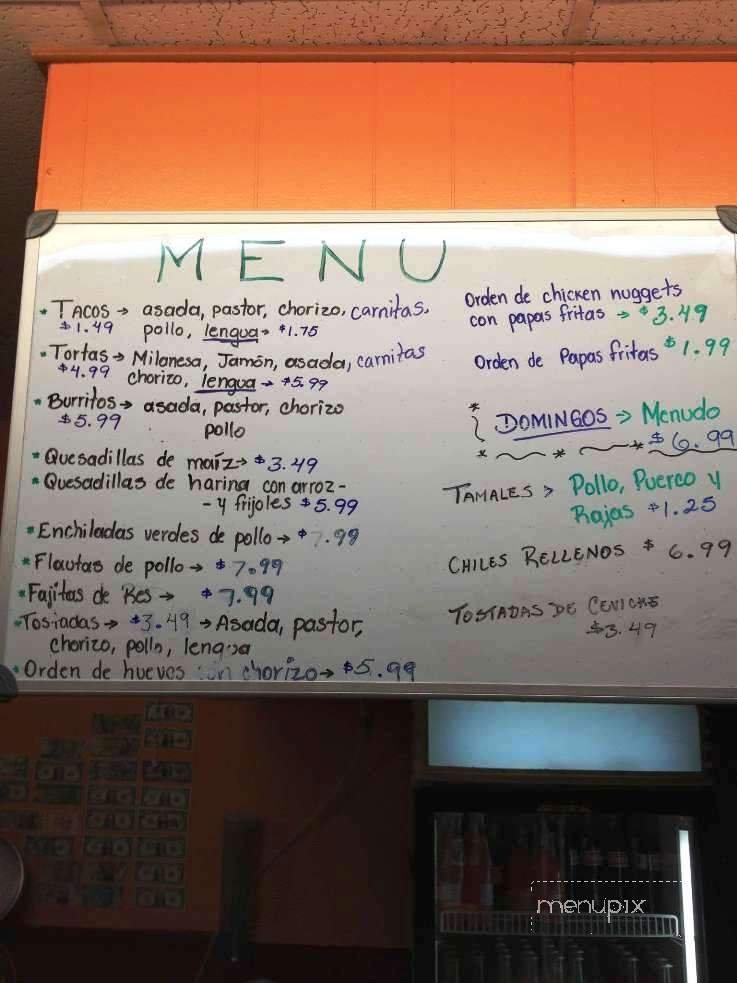 MENU
• TACOS → asada, pastor, chorizo, carnitas,
$1.49 pollo, lengua → $1.75
• Tortas → Milanesa, Jamón, asada, carnitas
$4.99 chorizo, lengua → $5.99
* Burritos → asada, pastor, chorizo
$5.99 pollo
* Quesadillas de maíz → $3.49
* Quesadillas de harina con arroz-
- y frijoles $5.99
* Enchiladas verdes de pollo → $7.99
* Flautas de pollo → $7.99
* Fajitas de Res → $7.99
* Tostadas → $3.49 → Asada, pastor,
chorizo, pollo, lengua
• Orden de huevos con chorizo → $5.99
Orden de chicken nuggets
con papas fritas → $3.49
Orden de Papas fritas $1.99
DOMINGOS → Menudo
$6.99
TAMALES > Pollo, Puerco y
Rajas $1.25
CHILES RELLENOS $6.99
TOSTADAS DE CEVICHE
$3.49
menupix